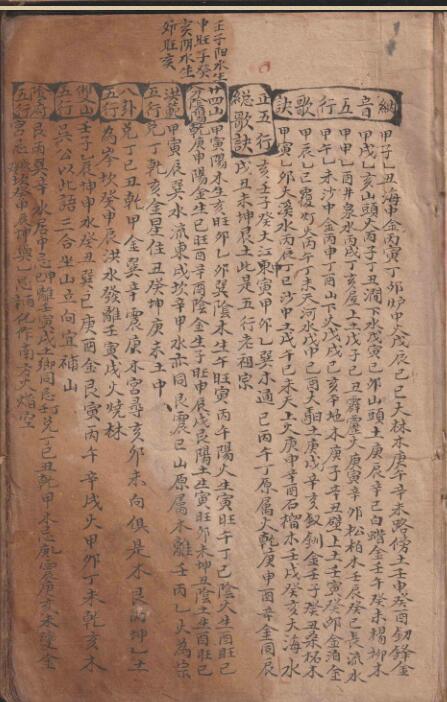 納音五行歌訣
甲子乙丑海中金丙寅丁卯炉中火戊辰己巳大林木庚午辛未路傍土壬申癸酉釰鋒金
甲戌乙亥山頭火丙子丁丑澗下水戊寅己卯山頭土庚辰辛巳白蜡金壬午癸未楊柳木
甲申乙酉井泉水丙戌丁亥屋上土戊子己丑霹靂火庚寅辛卯松柏木壬辰癸巳長流水
甲午乙未沙中金丙申丁酉山下火戊戌己亥平地木庚子辛丑壁上土壬寅癸卯金泊金
甲辰乙巳覆灯火丙午丁未天河水戊申己酉大馹土庚戌辛亥釵釧金壬子癸丑桑柘木
甲寅乙卯大溪水丙辰丁巳沙中土戊午己未天上火庚申辛酉石榴木壬戌癸亥大海水
正五行總歌訣
亥壬子癸大江東寅甲卯乙巽木通巳丙午丁原属火乾庚申酉辛金同辰
戌丑未坤艮土此是五行老祖宗
壬子陽水生
申旺子癸
亥陰水生
卯旺亥
廿四山分陰陽
甲寅陽木生亥旺卯乙卯巽陰木生午旺寅丙午陽火生寅旺午丁巳陰火生酉旺巳
乾庚申陽金生巳旺酉辛酉陰金生子旺申辰戌艮陽土生寅旺卯未坤丑陰土生酉旺巳
洪範五行
甲寅辰巽水流東戌坎辛申水亦同艮震巳山原属木離壬丙乙火為宗
兌丁乾亥金星位丑癸坤庚未土中
八卦五行
兌丁巳丑乾甲金巽辛震庚木宮尋亥卯未向俱是木艮丙坤乙土
為岑坎癸申辰洪水發離壬寅戌火焼林
双山五行
壬子乙辰坤申水癸丑巽巳庚酉金艮寅丙午辛戌火甲卯丁未乾亥木
吳公以此語三合坐山立向宜補山
陰府五行
艮丙巽辛水居中忌離壬寅戌土鄉同忌兌丁巳丑乾甲木忌震庚亥未金
宮忌坎癸申辰坤乙忌化作南方火焰空